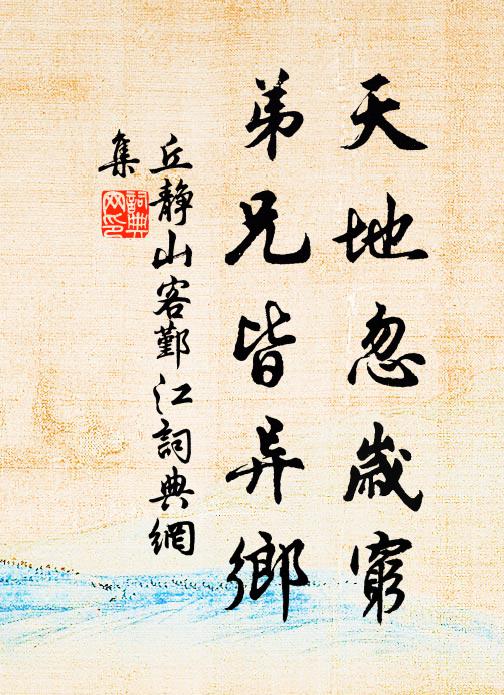 天地忽歲窮
弟兄皆异鄉
丘靜山客鄞江詞典網
集
詞典网印